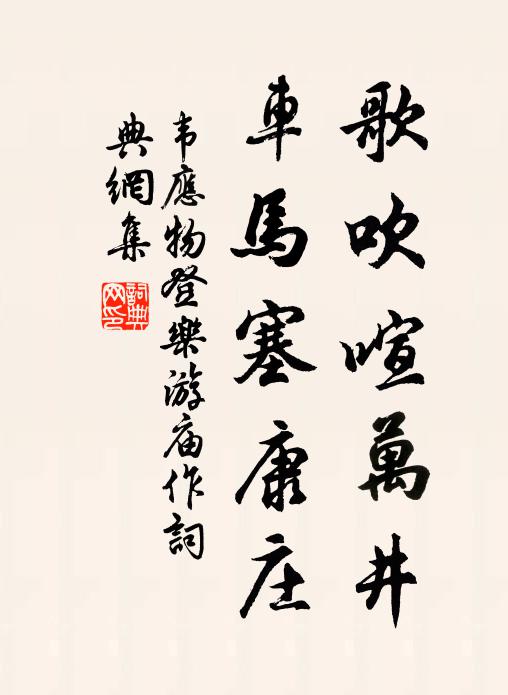 歌吹喧萬井
車馬塞康庄
韦應物登樂游庙作詞
典網集
詞典网印